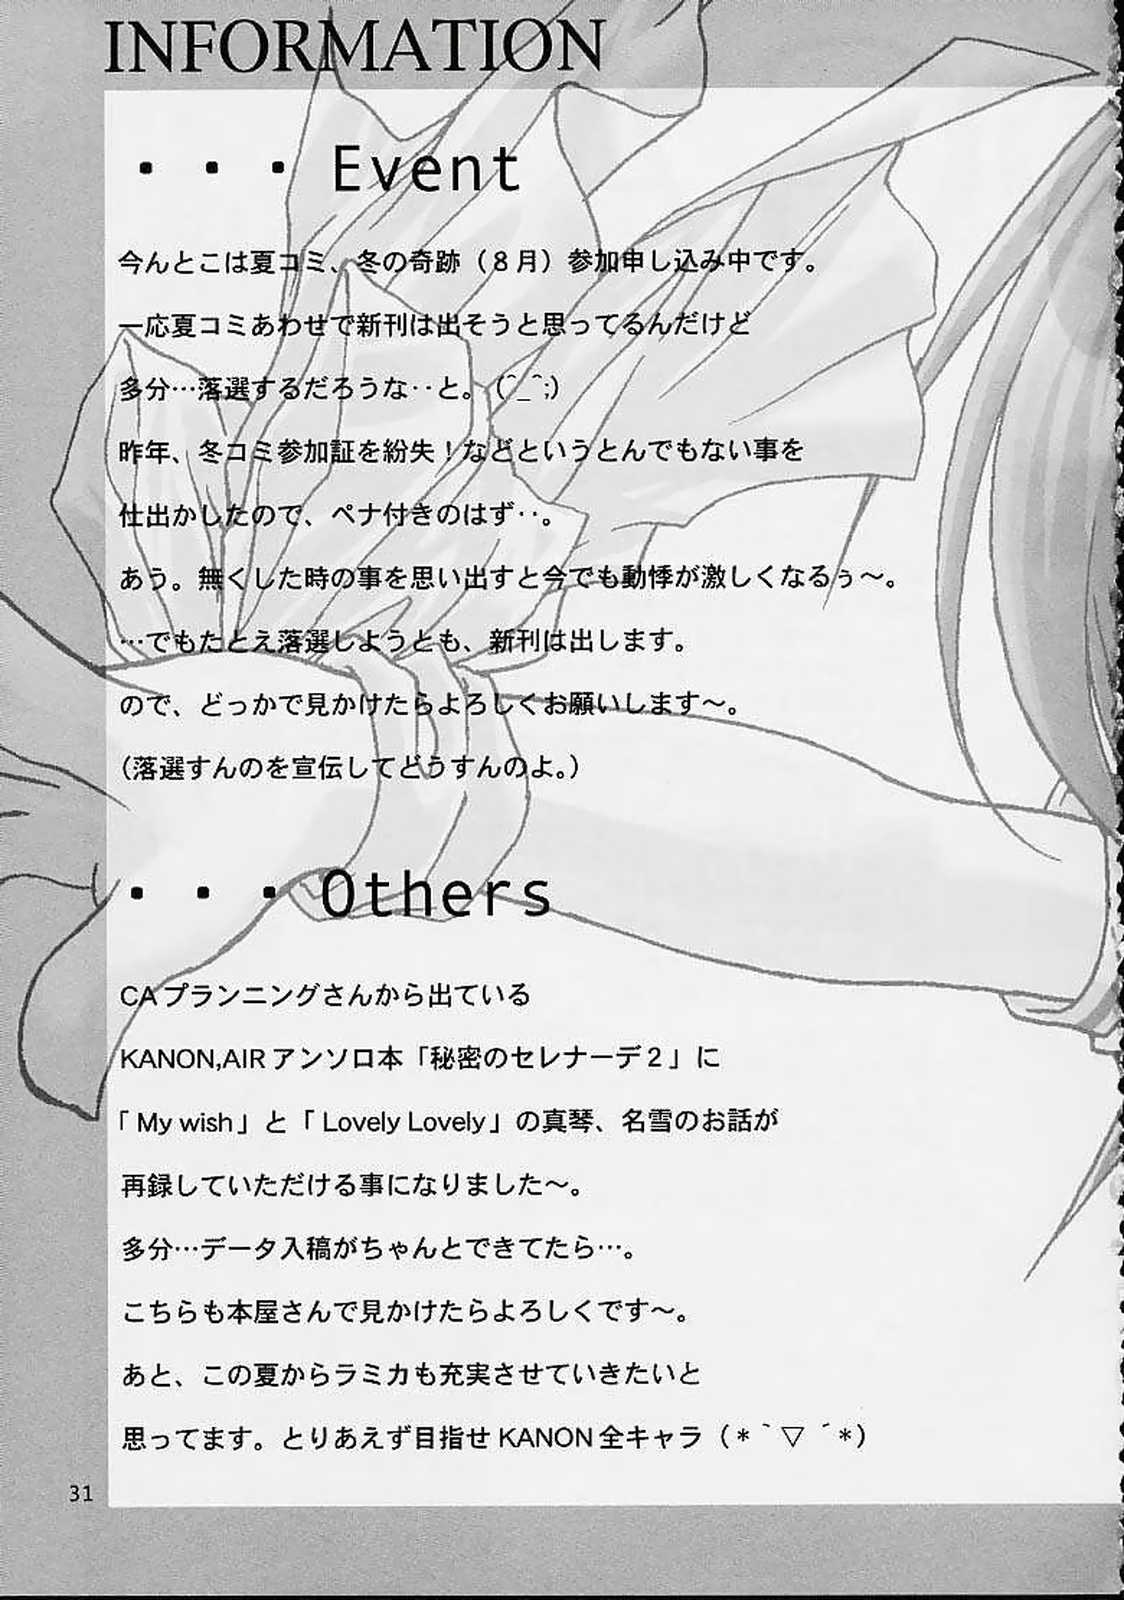 INFORMATION
・・・Event
今んとこは夏コミ、冬の奇跡（８月）参加申し込み中です。
一応夏コミあわせで新刊は出そうと思ってるんだけど
多分…落選するだろうな‥と。(^_^;)
昨年、冬コミ参加証を紛失！などというとんでもない事を
仕出かしたので、ペナ付きのはず‥。
あう。無くした時の事を思い出すと今でも動悸が激しくなるぅ〜。
…でもたとえ落選しようとも、新刊は出します。
ので、どっかで見かけたらよろしくお願いします〜。
（落選すんのを宣伝してどうすんのよ。）
・・・Others
CAプランニングさんから出ている
KANON,AIRアンソロ本「秘密のセレナーデ２」に
「My wish」と「Lovely Lovely」の真琴、名雪のお話が
再録していただける事になりました〜。
多分…データ入稿がちゃんとできてたら…。
こちらも本屋さんで見かけたらよろしくです〜。
あと、この夏からラミカも充実させていきたいと
思ってます。とりあえず目指せKANON全キャラ（*｀▽´*）
31